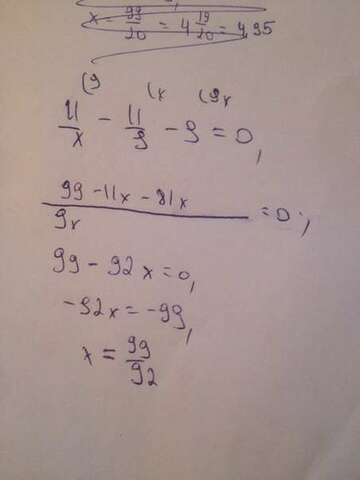 x = 99/20 = 4 19/20 = 4,95
(9 (x (9x
11/x - 11/9 - 9 = 0,
(99 - 11x - 81x)/9x = 0;
99 - 92x = 0,
-92x = -99,
x = 99/92